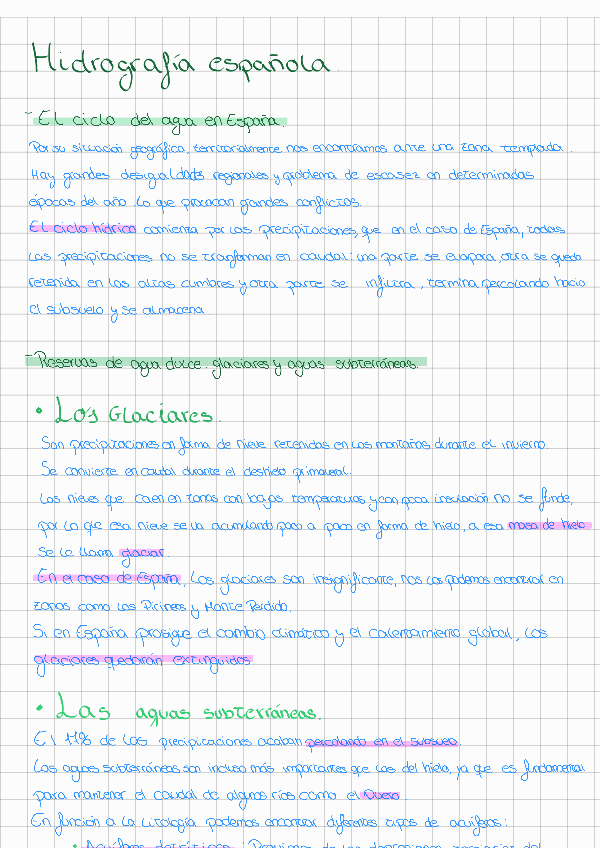 Hidrografía española.
- El ciclo del agua en España.
Por su situación geográfica, territorialmente, nos encontramos ante una zona templada.
Hay grandes desigualdades regionales y problema de escasez en determinadas
épocas del año lo que provocan grandes conflictos.
El ciclo hídrico comienza por las precipitaciones, que en el caso de España, todas
las precipitaciones no se transforman en caudal: una parte se evapora, otra se queda
retenida en las altas cumbres y otra parte se infiltra, termina percolando hacia
el subsuelo y se almacena
- Reservas de agua dulce: glaciares y aguas subterráneas.
• Los Glaciares.
Son precipitaciones en forma de nieve retenidas en las montañas durante el invierno.
Se convierte en caudal durante el deshielo primaveral.
Las nieves que caen en zonas con bajas temperaturas y con poca insolación no se funde,
por lo que esa nieve se va acumulando poco a poco en forma de hielo, a esa masa de hielo
se le llama glaciar.
En el caso de España, los glaciares son insignificante, nos los podemos encontrar en
zonas como los Pirineos y Monte Perdido.
Si en España prosigue el cambio climático y el calentamiento global, los
glaciares quedarán extinguidos
• Las aguas subterráneas.
El 11% de las precipitaciones acaban percolando en el subsuelo.
Las aguas subterráneas son incluso más importantes que las del hielo, ya que es fundamental
para mantener el caudal de algunos ríos como el Duero
En función a la litología podemos encontrar diferentes tipos de acuíferos: